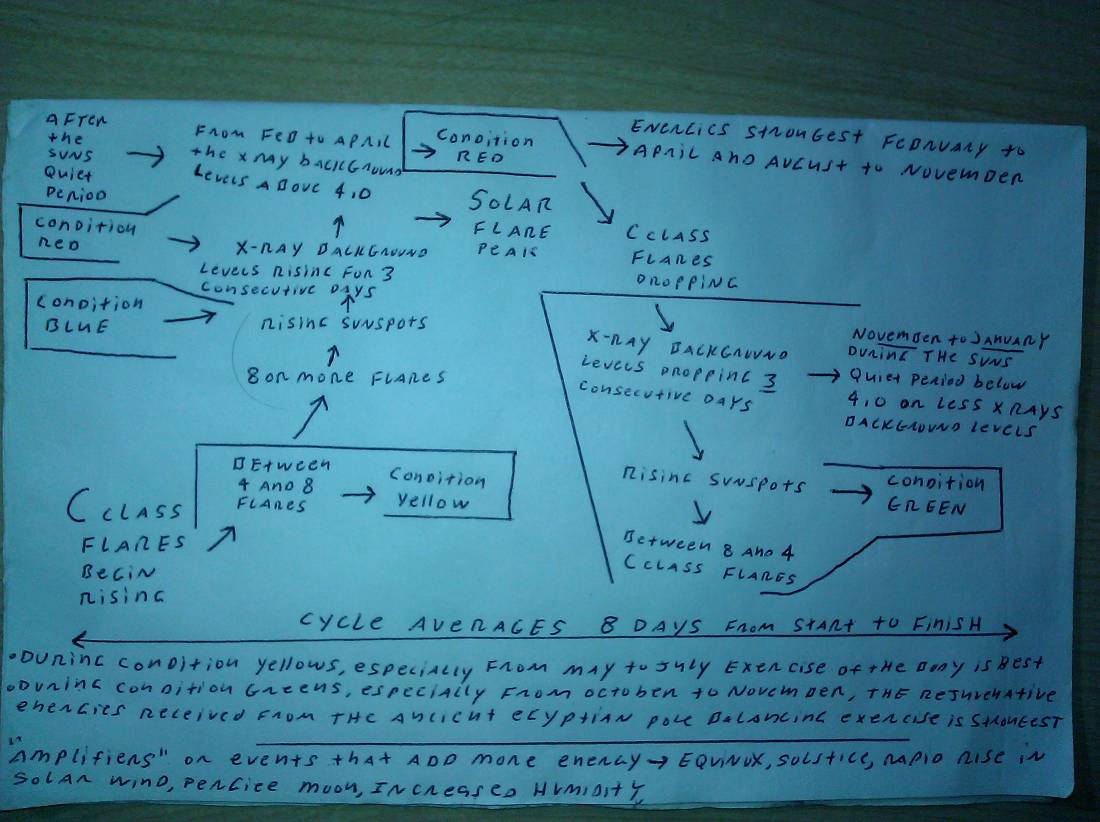 AFTER
the
SUNS
QUIET
PERIOD
FROM FEB to APRIL
the XRAY BACKGROUND
LEVELS ABOVE 4.0
Condition
RED
ENERGIES STRONGEST FEBRUARY to
APRIL AND AUGUST to NOVEMBER
Condition
RED
X-RAY BACKGROUND
LEVELS RISING FOR 3
CONSECUTIVE DAYS
SOLAR
FLARE
PEAK
C CLASS
FLARES
DROPPING
Condition
BLUE
RISING SUNSPOTS
8 OR MORE FLARES
X-RAY BACKGROUND
LEVELS DROPPING 3
CONSECUTIVE DAYS
NOVEMBER to JANUARY
DURING THE SUNS
QUIET PERIOD below
4.0 OR LESS X RAYS
BACKGROUND LEVELS
BETWEEN
4 AND 8
FLARES
Condition
Yellow
RISING SUNSPOTS
Condition
GREEN
Between 8 AND 4
C CLASS FLARES
C CLASS
FLARES
BEGIN
RISING
CYCLE AVERAGES 8 DAYS FROM START to FINISH
•DURING Condition Yellows, especially FROM MAY to July EXERCISE of the BODY is BEST
•DURING Condition GREENS, especially FROM OCTOBER to NOVEMBER, THE REJUVENATIVE
energies Received FROM THE ANCIENT EGYPTIAN POLE BALANCING exercise is STRONGEST
"AMPLIFIERS" OR EVENTS that ADD MORE energy → EQUINOX, SOLSTICE, RAPID RISE in
SOLAR WIND, PERGIEE MOON, INCREASED HUMIDITY,